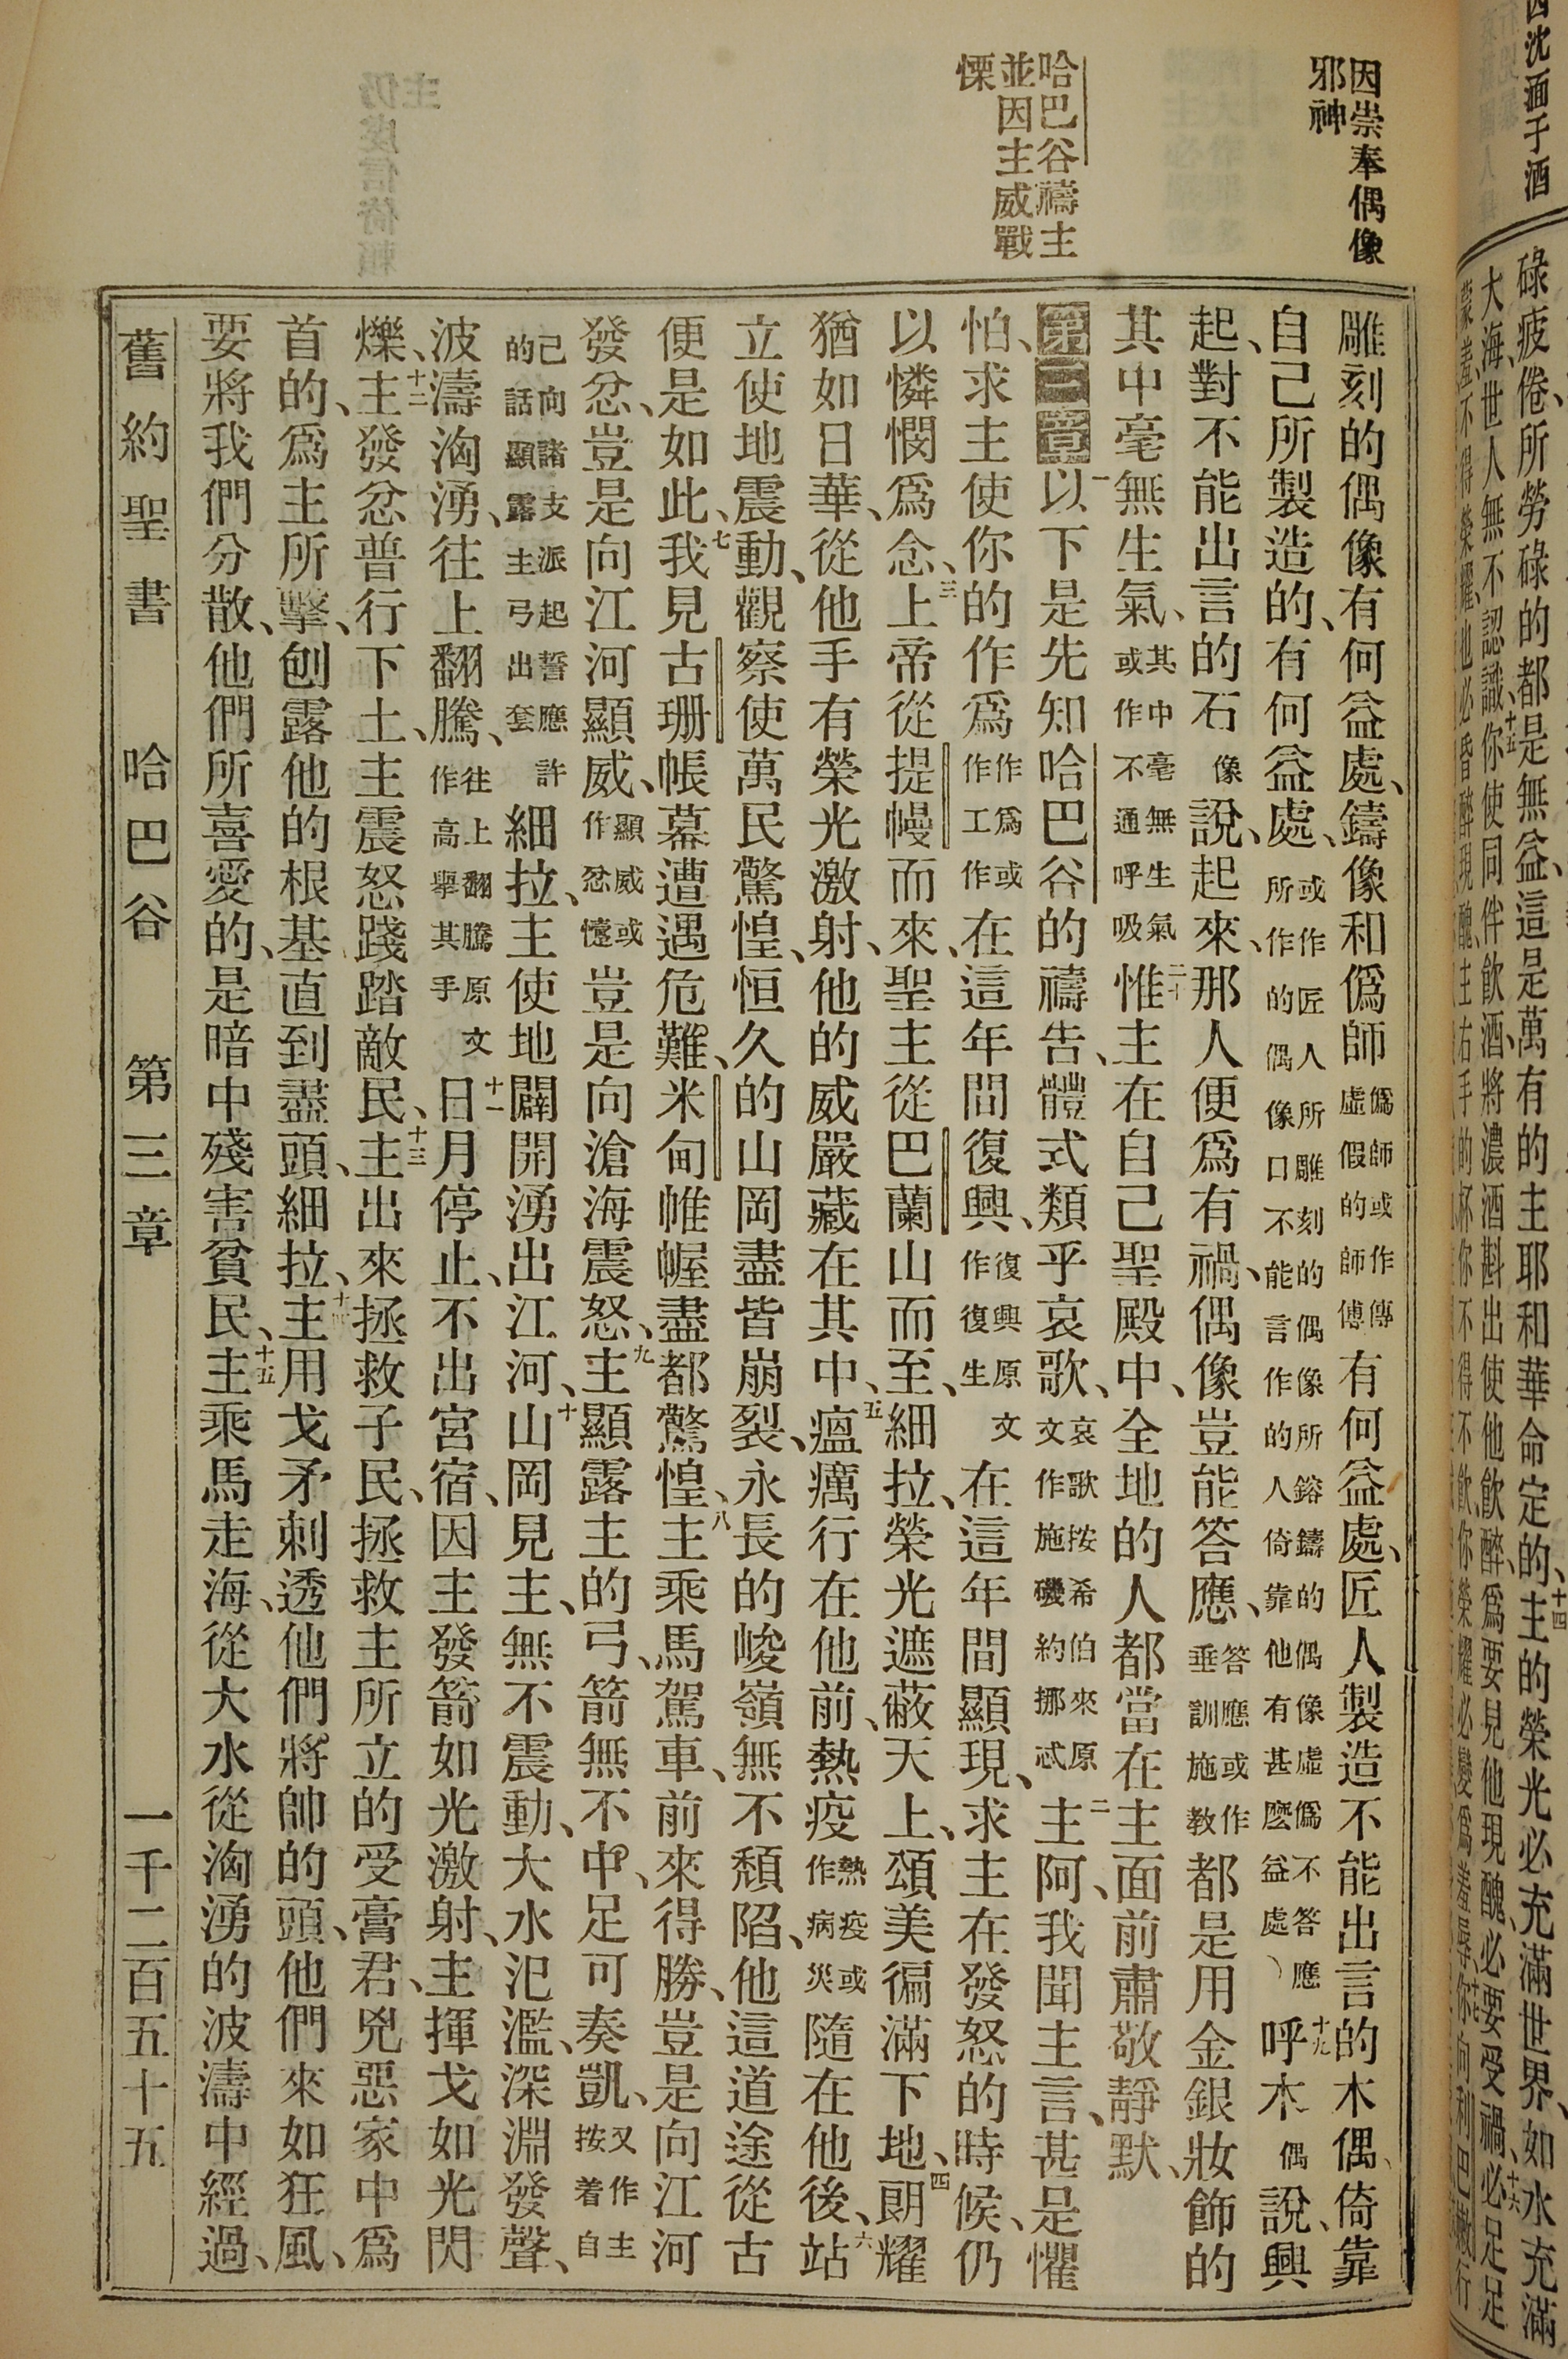 因崇奉偶像
邪神
哈巴谷禱主
並因主威戰
慄
雕刻的偶像有何益處、鑄像和僞師僞師或作傳虛假的師傅有何益處、匠人製造不能出言的木偶、倚靠
自己所製造的、有何益處、或作匠人所雕刻的偶像所鎔鑄的偶像虛僞不答應所作的偶像口不能言作的人倚靠他有甚麼益處）十九呼木偶說、興
起、對不能出言的石像說、起來、那人便爲有禍、偶像豈能答應、答應或作垂訓施教都是用金銀妝飾的
其中毫無生氣、其中毫無生氣或作不通呼吸二十惟主在自己聖殿中、全地的人都當在主面前肅敬靜默、
第三章一以下是先知哈巴谷的禱告、體式類乎哀歌、哀歌按希伯來原文作施磯約挪忒二主阿、我聞主言、甚是懼
怕、求主使你的作爲作爲或作工作在這年間復興、復興原文作復生在這年間顯現、求主在發怒的時候、仍
以憐憫爲念、三上帝從提幔而來、聖主從巴蘭山而至、細拉、榮光遮蔽天上、頌美徧滿下地、四朗耀
猶如日華、從他手有榮光激射、他的威嚴藏在其中、五瘟癘行在他前、熱疫熱疫或作病災隨在他後、六站
立使地震動、觀察使萬民驚惶、恒久的山岡盡皆崩裂、永長的峻嶺無不頹陷、他這道途從古
便是如此、七我見古珊帳幕遭遇危難、米甸帷幄盡都驚惶、八主乘馬駕車、前來得勝、豈是向江河
發忿、豈是向江河顯威、顯威或作忿懥豈是向滄海震怒、九主顯露主的弓、箭無不中、足可奏凱、又作主按着自
己向諸支派起誓應許的話顯露主弓出套細拉、主使地闢開湧出江河、十山岡見主、無不震動、大水氾濫、深淵發聲、
波濤洶湧、往上翻騰、往上翻騰原文作高舉其手十一日月停止、不出宮宿、因主發箭如光激射、主揮戈如光閃
爍、十二主發忿普行下土、主震怒踐踏敵民、十三主出來拯救子民、拯救主所立的受膏君、兇惡家中爲
首的、爲主所擊、刨露他的根基直到盡頭、細拉、十四主用戈矛刺透他們將帥的頭、他們來如狂風、
要將我們分散、他們所喜愛的、是暗中殘害貧民、十五主乘馬走海、從大水從洶湧的波濤中經過、
舊約聖書　哈巴谷　第三章　一千二百五十五
碌疲倦、所勞碌的都是無益、這是萬有的主耶和華命定的、十四主的榮光必充滿世界、如水充滿
大海、世人無不認識、十五你使同伴飲酒、將濃酒斟出使他飲醉、爲要見他現醜、必要受禍、十六必足足